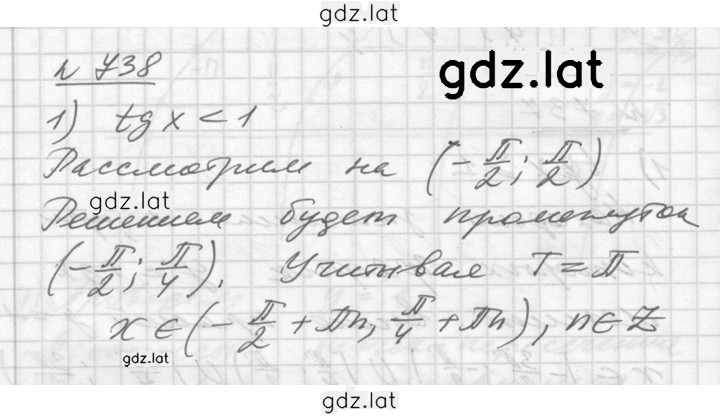 gdz.lat
n 738
gdz.lat
1) tg x < 1
Рассмотрим на (-π/2; π/2)
gdz.lat
Решением будет промежуток
(-π/2; π/4). Учитывая T = π
x ∈ (-π/2 + πn, π/4 + πn), n ∈ Z
gdz.lat
gdz.lat